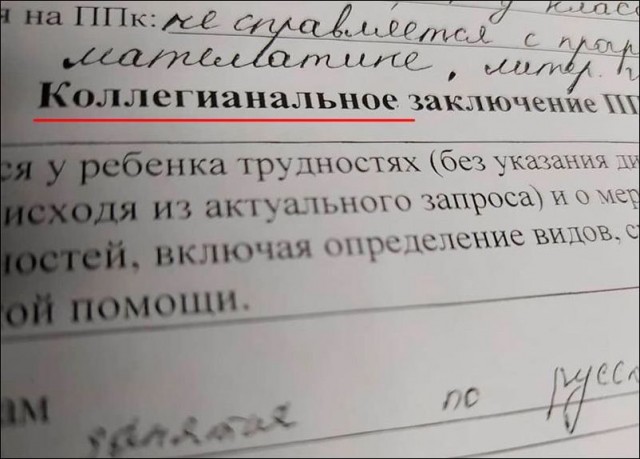 я на ППк: не справляется с прог
математике, литер. г
Коллегианальное заключение ПП
ся у ребенка трудностях (без указания ди
исходя из актуального запроса) и о мер
ностей, включая определение видов, с
ой помощи.
ам занятия по русск